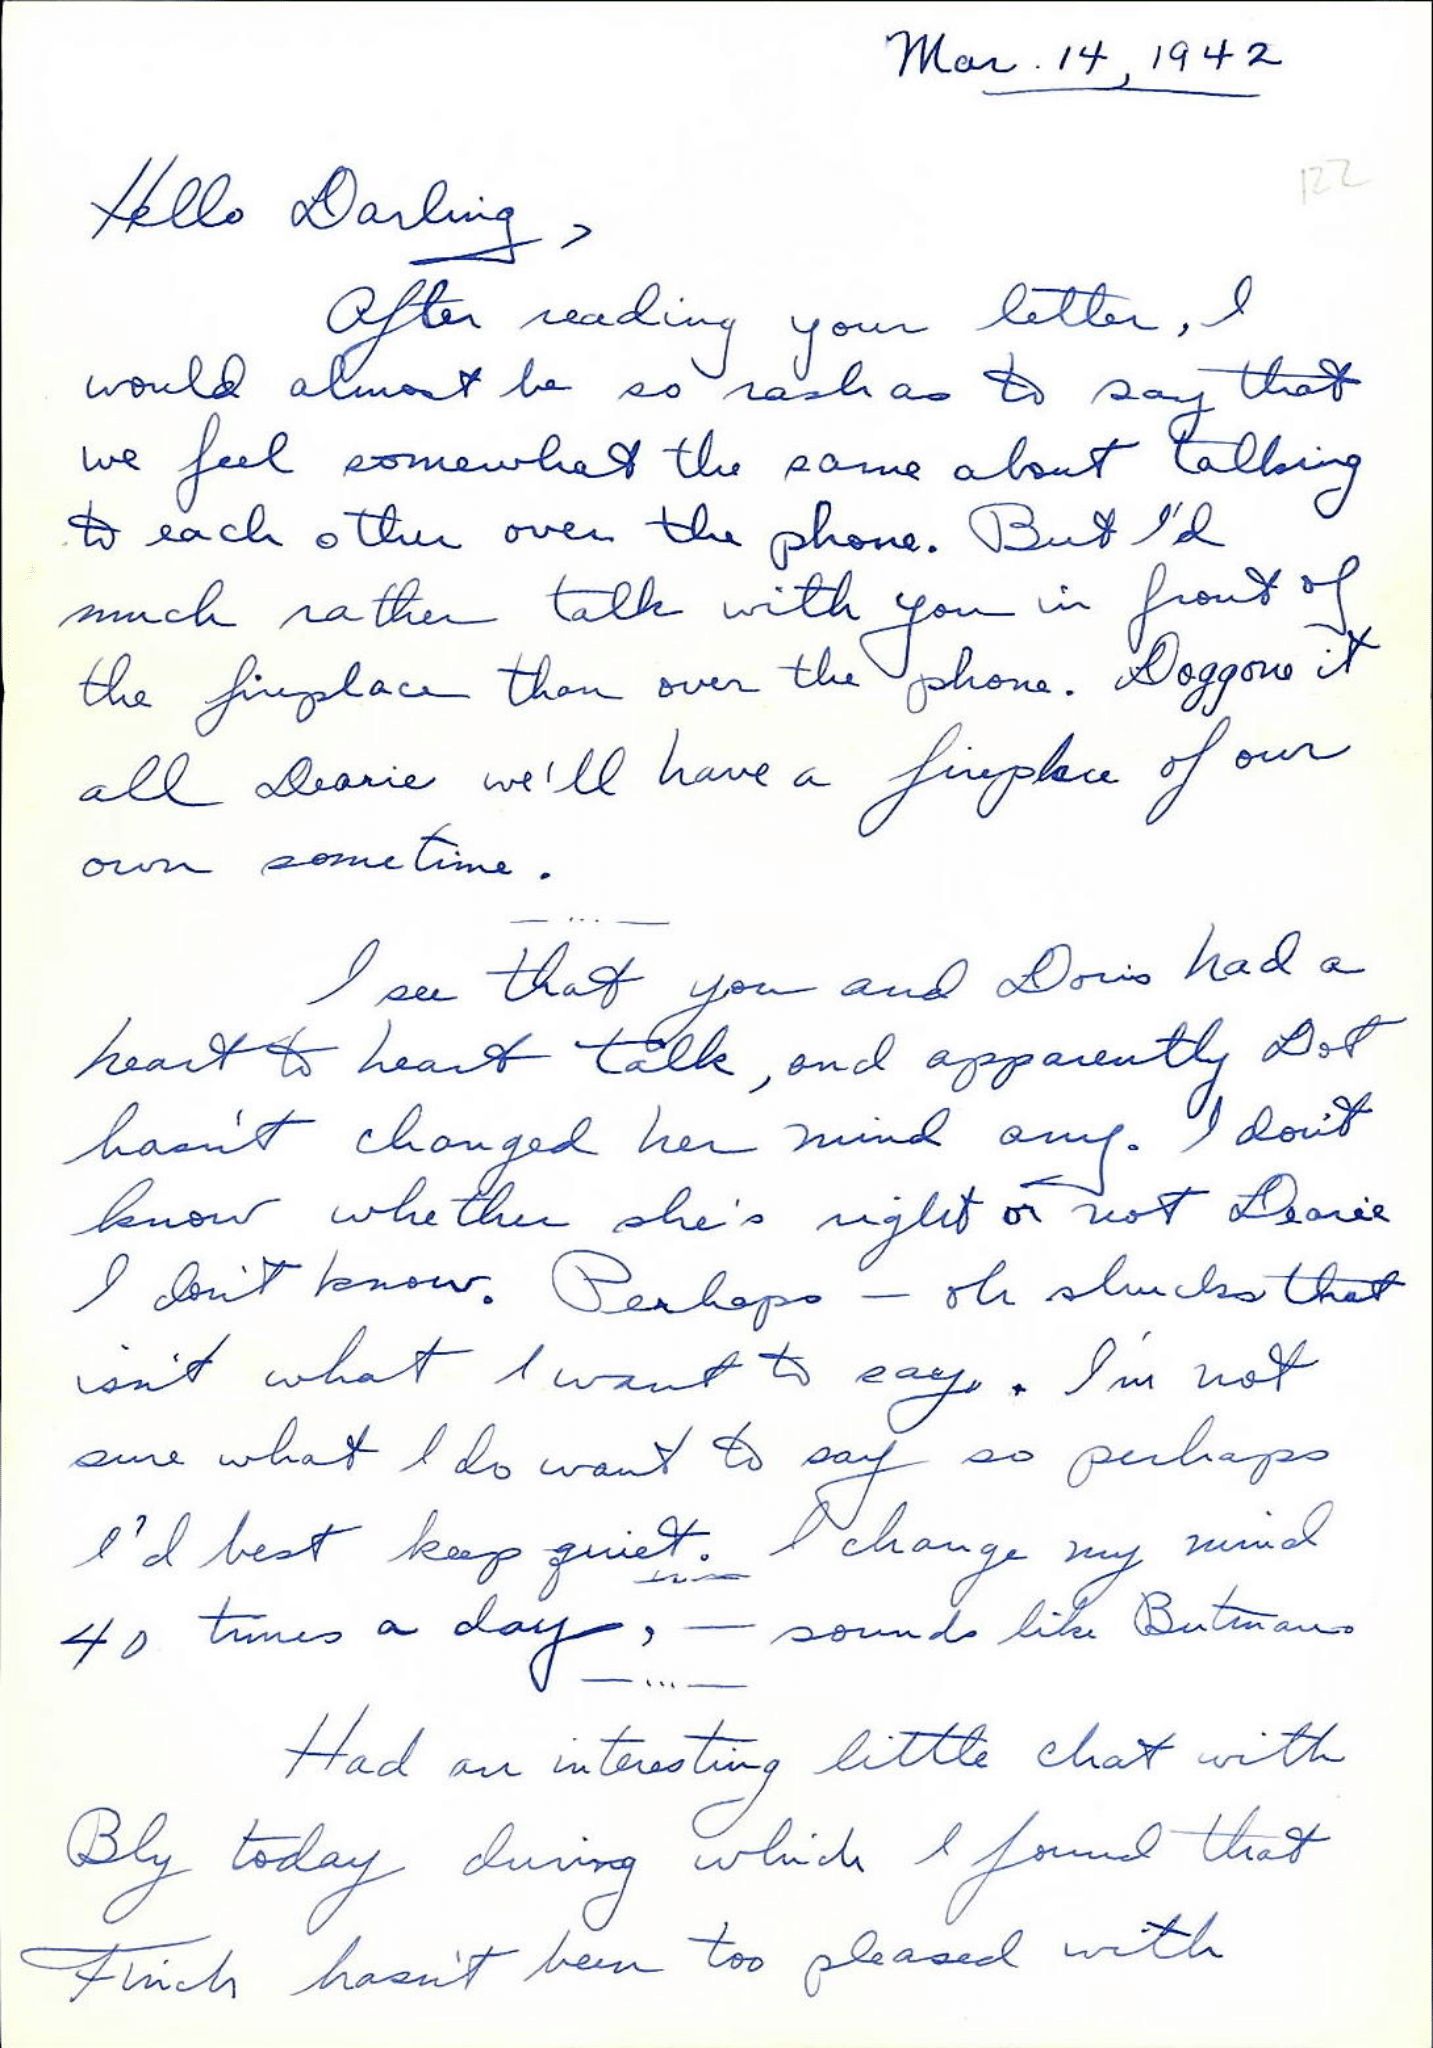 Mar. 14, 1942
122
Hello Darling,
After reading your letter, I
would almost be so rash as to say that
we feel somewhat the same about talking
to each other over the phone. But I'd
much rather talk with you in front of
the fireplace than over the phone. Doggone it
all Dearie we'll have a fireplace of our
own sometime.
— ... —
I see that you and Doris had a
heart to heart talk, and apparently Dot
hasn't changed her mind any. I don't
know whether she's right or not Dearie
I don't know. Perhaps — oh shucks that
isn't what I want to say. I'm not
sure what I do want to say so perhaps
I'd best keep quiet. I change my mind
40 times a day, — sounds like
— ... —
Had an interesting little chat with
Bly today during which I found that
Finch hasn't been too pleased with